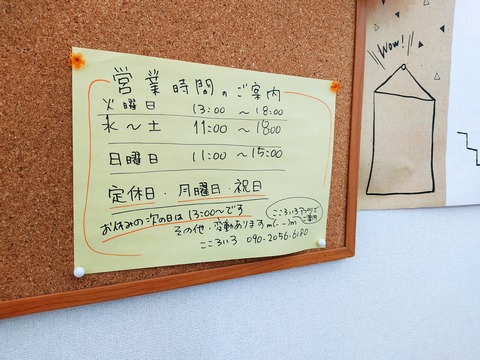 営業時間のご案内
火曜日 13:00 〜 18:00
水〜土 11:00 〜 18:00
日曜日 11:00 〜 15:00
定休日・月曜日・祝日
お休みの次の日は 13:00〜です
その他・変動あります m(--)m
こころいろアプリで
ご案内
こころいろ 090-2056-6180
Wow!